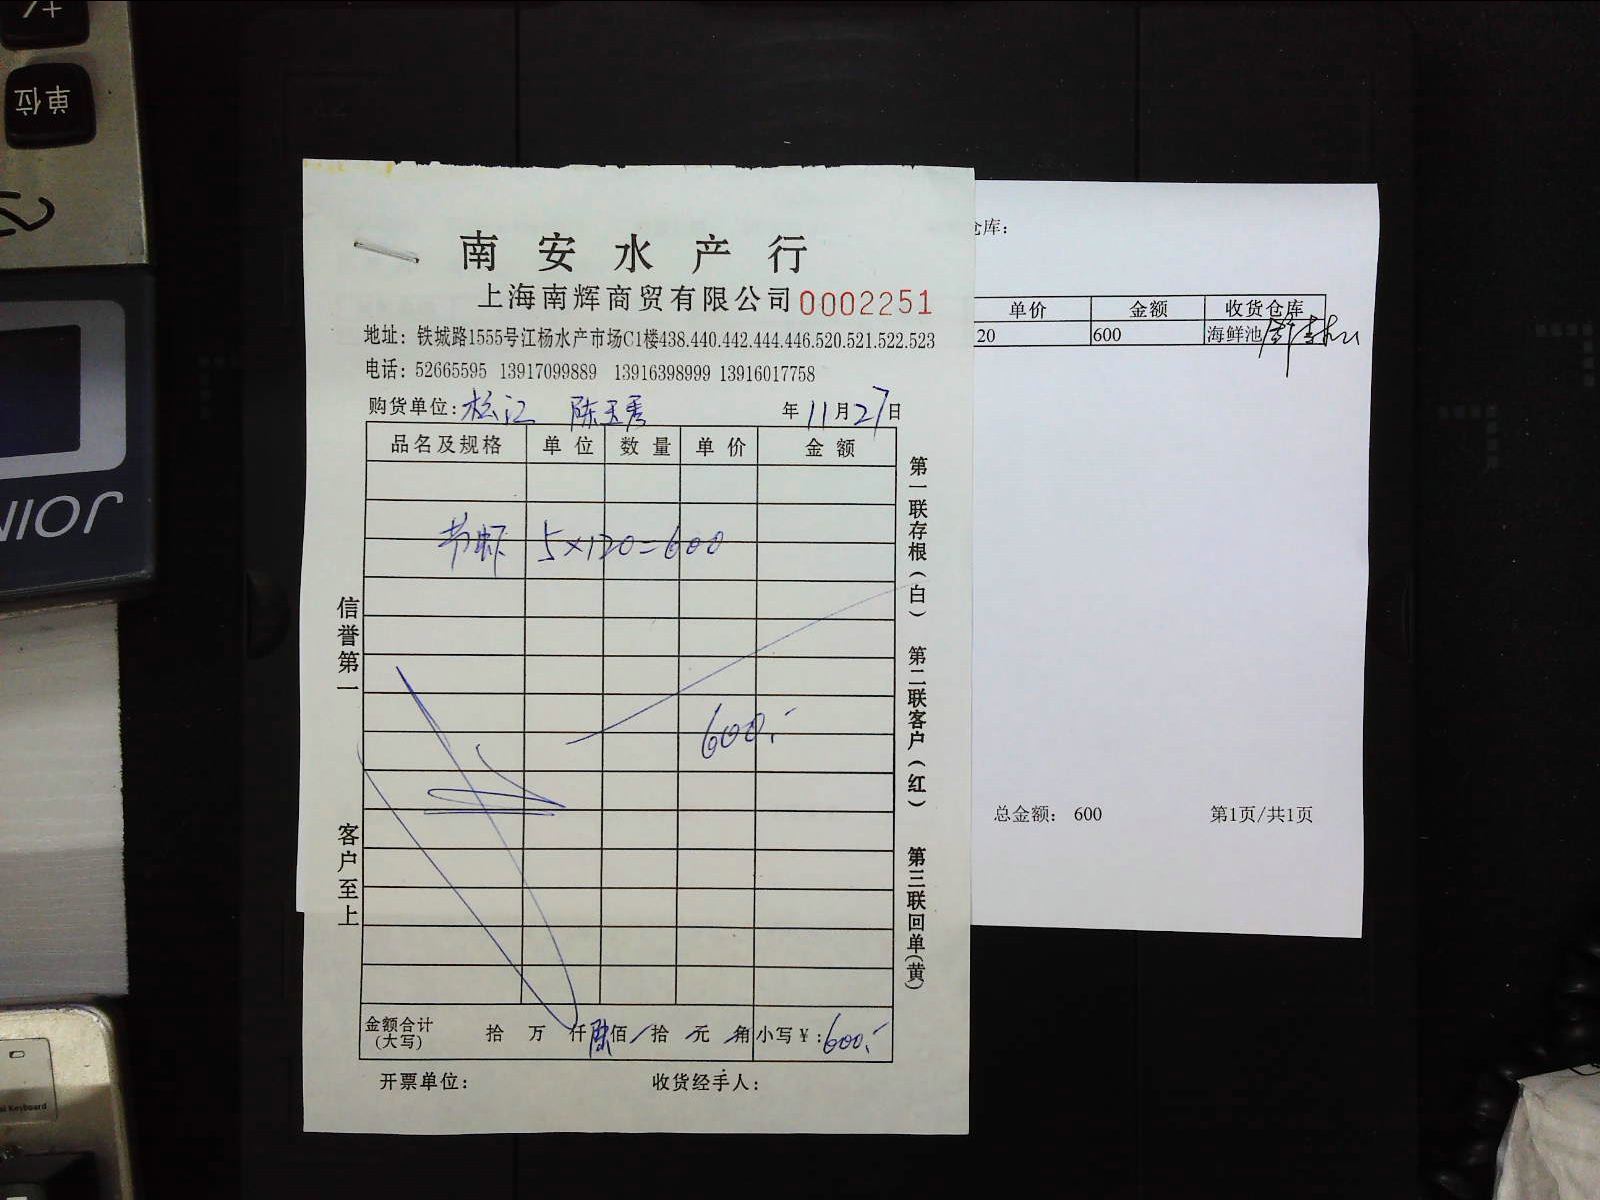 单位
南安水产行
上海南辉商贸有限公司 0002251
地址：铁城路1555号江杨水产市场C1楼438.440.442.444.446.520.521.522.523
电话：52665595 13917099889 13916398999 13916017758
购货单位：松江 陈玉秀 年11月27日
品名及规格 单位 数量 单价 金额
节虾 5×120=600
600.-
金额合计(大写) 拾 万 仟 陆佰 拾 元 角 小写¥：600.-
开票单位： 收货经手人：
信誉第一
客户至上
第一联存根(白) 第二联客户(红) 第三联回单(黄)
仓库：
单价 金额 收货仓库
20 600 海鲜池
总金额： 600 第1页/共1页
JOIN
Keyboard